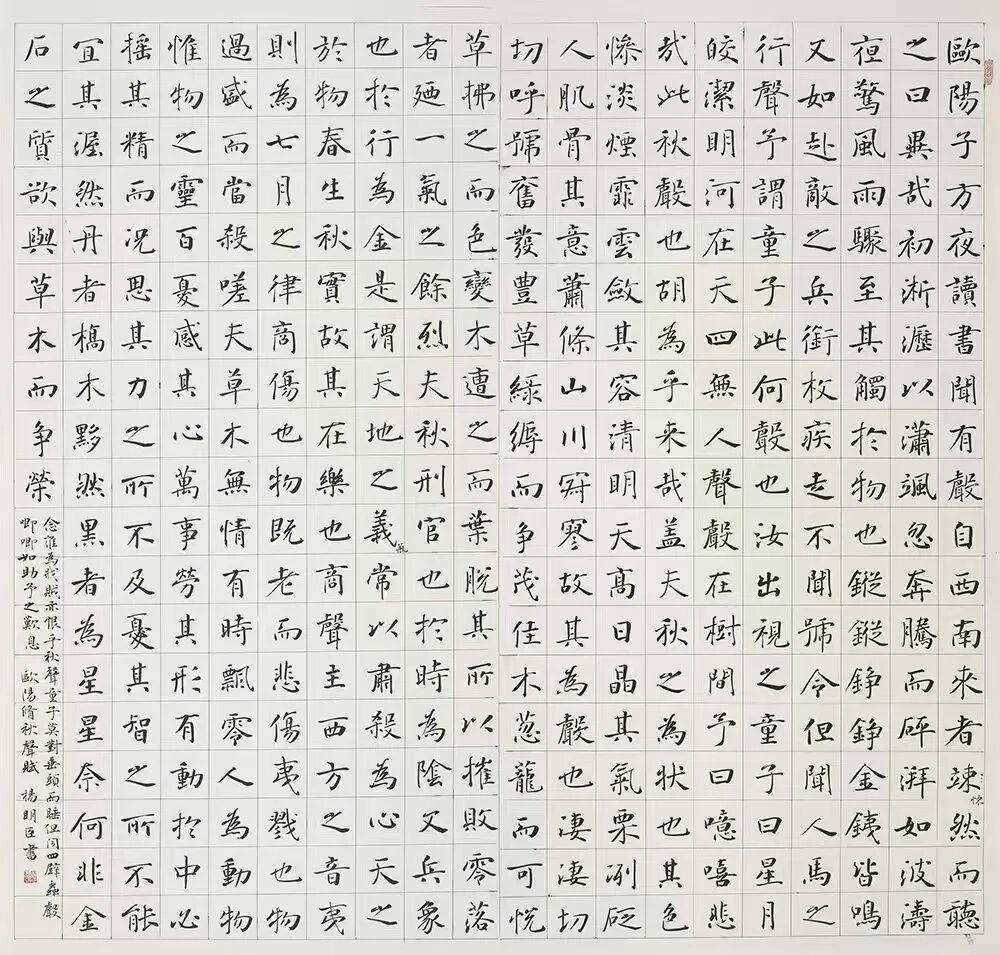 歐陽子方夜讀書聞有聲自西南來者竦悚然而聽
之曰異哉初淅瀝以瀟颯忽奔騰而砰湃如波濤
夜驚風雨驟至其觸於物也鏦鏦錚錚金鐵皆鳴
又如赴敵之兵銜枚疾走不聞號令但聞人馬之
行聲予謂童子此何聲也汝出視之童子曰星月
皎潔明河在天四無人聲聲在樹間予曰噫嘻悲
哉此秋聲也胡為乎来哉蓋夫秋之為狀也其色
慘淡煙霏雲斂其容清明天高日晶其氣栗冽砭
人肌骨其意蕭條山川寂寥故其為聲也淒淒切
切呼號奮發豐草綠縟而爭茂佳木蔥龍而可悅
草拂之而色變木遭之而葉脫其所以摧敗零落
者廼一氣之餘烈夫秋刑官也於時為陰又兵象
也於行為金是謂天地之義氣常以肅殺為心天之
於物春生秋實故其在樂也商聲主西方之音夷
則為七月之律商傷也物既老而悲傷夷戮也物
過盛而當殺嗟夫草木無情有時飄零人為動物
惟物之靈百憂感其心萬事勞其形有動於中必
搖其精而況思其力之所不及憂其智之所不能
宜其渥然丹者槁木黟然黑者為星星奈何非金
石之質欲與草木而爭榮
念誰為戕賊亦恨乎秋聲童子莫對垂頭而睡但聞四壁蟲聲
唧唧如助予之歎息 歐陽脩秋聲賦 楊明臣書